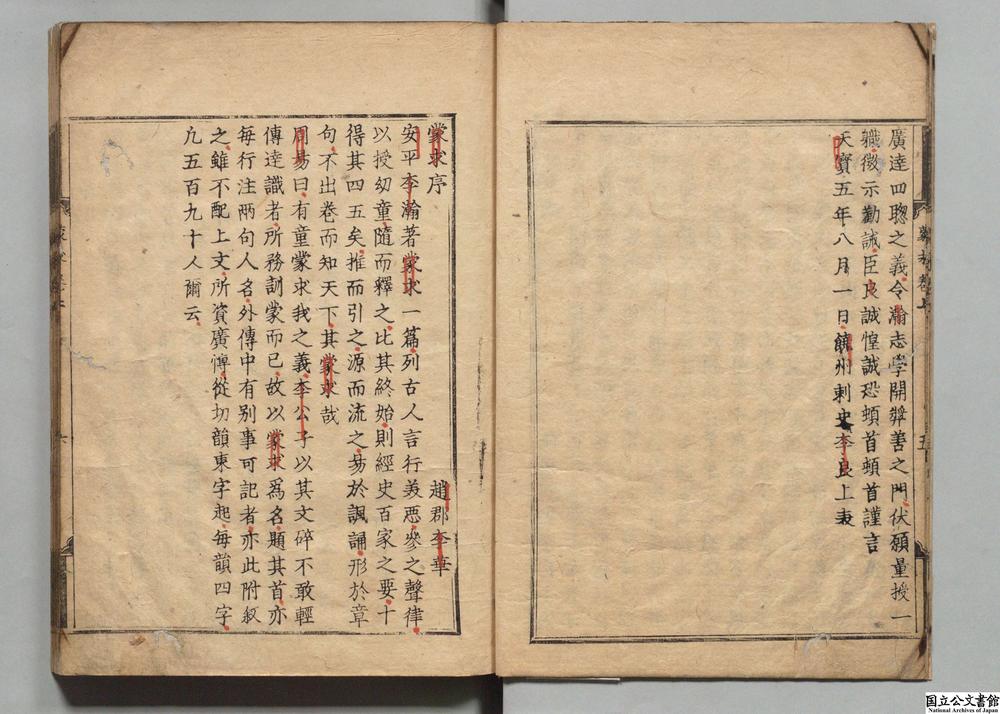 廣達四聦之義令瀚志學開奨善之門伏願量授一
職微示勸誡臣良誠惶誠恐頓首頓首謹言
天寳五年八月一日饒州刺史李良上表
蒙求序
趙郡李華
安平李瀚著蒙求一篇列古人言行羙惡叅之聲律
以授幼童隨而釋之比其終始則經史百家之要十
得其四五矣推而引之源而流之易於諷誦形於章
句不出卷而知天下其蒙求哉
周易曰有童蒙求我之義李公子以其文碎不敢輕
傳達識者所務訓蒙而已故以蒙求爲名題其首亦
每行注兩句人名外傳中有别事可記者亦此附叙
之雖不配上文所資廣愽從切韻東字起每韻四字
凢五百九十人爾云
国立公文書館
National Archives of Japan